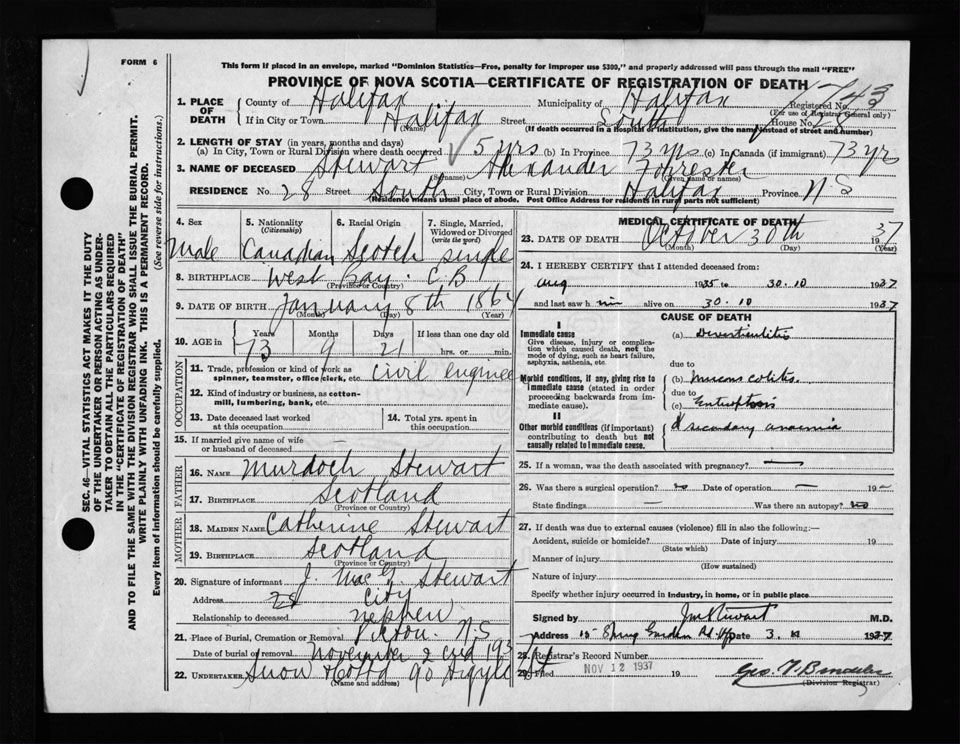 FORM 6
This form if placed in an envelope, marked "Dominion Statistics—Free, penalty for improper use $300," and properly addressed will pass through the mail "FREE"
PROVINCE OF NOVA SCOTIA—CERTIFICATE OF REGISTRATION OF DEATH
1. PLACE OF DEATH
County of Halifax Municipality of Halifax Registered No.
(For use of Registrar General only)
If in City or Town Halifax Street South House No. 28
(Name) (If death occurred in a hospital or institution, give the name instead of street and number)
2. LENGTH OF STAY (in years, months and days)
(a) In City, Town or Rural Division where death occurred 5 yrs (b) In Province 73 yrs (c) In Canada (if immigrant) 73 yr
3. NAME OF DECEASED Stewart Alexander Forrester
(Surname) (Given name or names)
RESIDENCE No. 28 Street South City, Town or Rural Division Halifax Province N S
(Residence means usual place of abode. Post Office Address for residents in rural parts not sufficient)
4. Sex
male
5. Nationality
(Citizenship)
Canadian
6. Racial Origin
Scotch
7. Single, Married, Widowed or Divorced
(write the word)
single
8. BIRTHPLACE West Bay. C.B
(Province or Country)
9. DATE OF BIRTH January 8th 1864
(Month) (Day) (Year)
10. AGE in Years Months Days If less than one day old
73 9 21 hrs. or min.
OCCUPATION
11. Trade, profession or kind of work as
spinner, teamster, office clerk, etc. civil engineer
12. Kind of industry or business, as cotton-
mill, lumbering, bank, etc.
13. Date deceased last worked
at this occupation
14. Total yrs. spent in
this occupation
15. If married give name of wife
or husband of deceased —
FATHER
16. NAME Murdoch Stewart
17. BIRTHPLACE Scotland
(Province or Country)
MOTHER
18. MAIDEN NAME Catherine Stewart
19. BIRTHPLACE Scotland
(Province or Country)
20. Signature of informant J. Mac G. Stewart
Address 28 City
Relationship to deceased nephew
21. Place of Burial, Cremation or Removal Pictou. N.S
Date of burial or removal November 2nd 193
22. UNDERTAKER Snow & Co Ltd 90 Argyle St
(Name and address)
MEDICAL CERTIFICATE OF DEATH
23. DATE OF DEATH October 30th 1937
(Month) (Day) (Year)
24. I HEREBY CERTIFY that I attended deceased from:
Aug 1935 to 30.10 1937
and last saw him alive on 30.10 1937
CAUSE OF DEATH
I
Immediate cause
Give disease, injury or complica-
tion which caused death, not the
mode of dying, such as heart failure,
asphyxia, asthenia, etc.
(a) Diverticulitis
due to
Morbid conditions, if any, giving rise to
immediate cause (stated in order
proceeding backwards from im-
mediate cause).
(b) mucous colitis.
due to
(c)
II
Other morbid conditions (if important)
contributing to death but not
causally related to immediate cause.
secondary anaemia
25. If a woman, was the death associated with pregnancy? —
26. Was there a surgical operation? no Date of operation — 19 —
State findings — Was there an autopsy? no
27. If death was due to external causes (violence) fill in also the following:—
Accident, suicide or homicide? Date of injury 19
(State which)
Manner of injury
(How sustained)
Nature of injury
Specify whether injury occurred in industry, in home, or in public place
Signed by J M Stewart M.D.
Address 15 Spring Garden Rd. Hfx Date 3. 11 1937
28. Registrar's Record Number
29. Filed NOV 12 1937 19
(Division Registrar)
SEC. 46—VITAL STATISTICS ACT MAKES IT THE DUTY
OF THE UNDERTAKER OR PERSON ACTING AS UNDER-
TAKER TO OBTAIN ALL THE PARTICULARS REQUIRED
IN THE "CERTIFICATE OF REGISTRATION OF DEATH"
AND TO FILE THE SAME WITH THE DIVISION REGISTRAR WHO SHALL ISSUE THE BURIAL PERMIT.
WRITE PLAINLY WITH UNFADING INK. THIS IS A PERMANENT RECORD.
Every item of information should be carefully supplied. (See reverse side for instructions.)